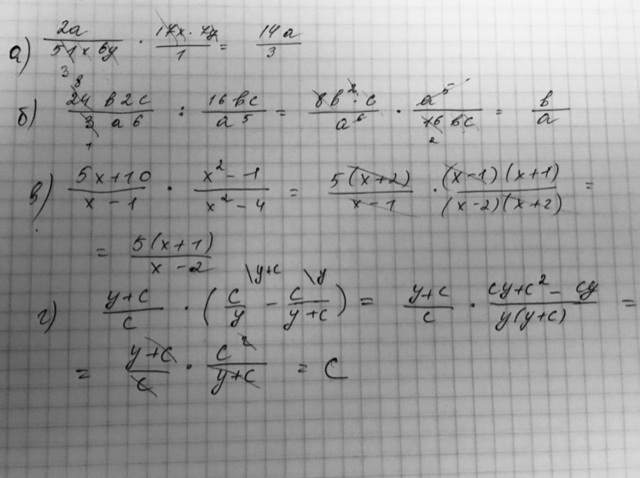 а) 2a / 51x6y · 17x·7y / 1 = 14a / 3
3
8
б) 24b2c / 3a6 : 16bc / a⁵ = 8b²·c / a⁶ · a⁵ / 16bc = b / a
1 2
в) 5x+10 / x-1 · x²-1 / x²-4 = 5(x+2) / x-1 · (x-1)(x+1) / (x-2)(x+2) =
= 5(x+1) / x-2
г) y+c / c · (c / y \y+c - c / y+c \y) = y+c / c · cy+c²-cy / y(y+c) =
= y+c / c · c² / y+c = c